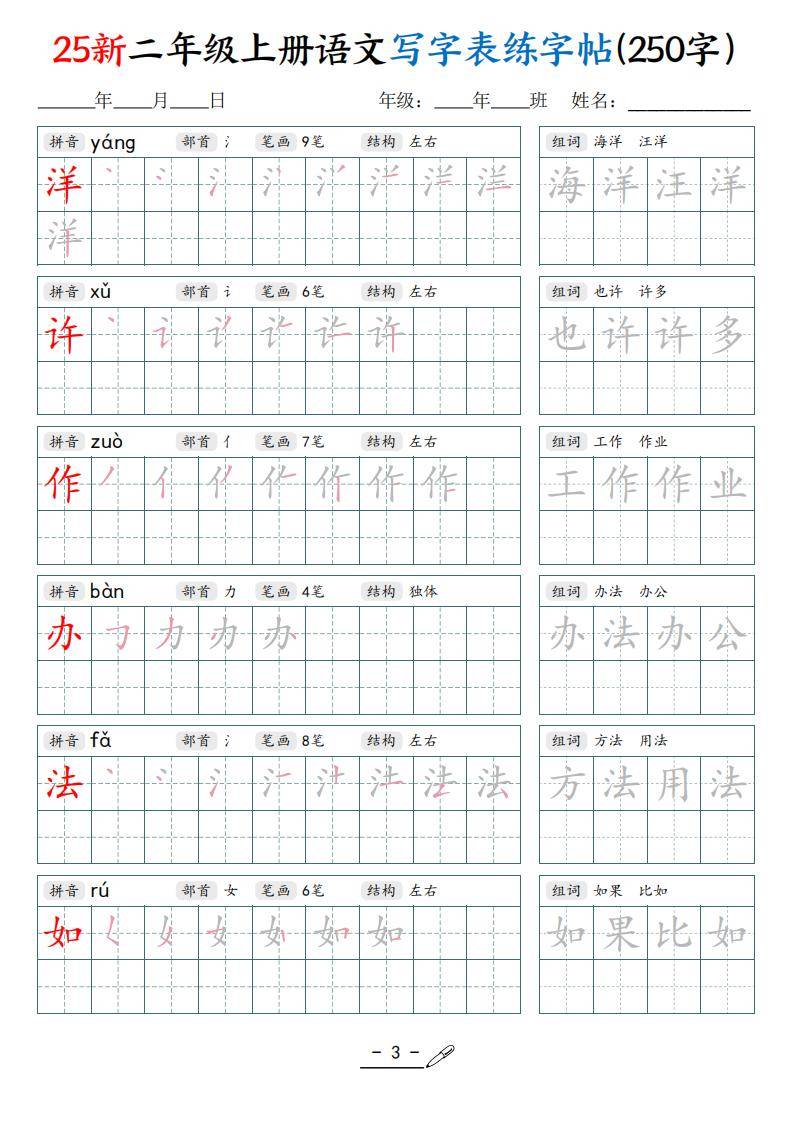 25新二年级上册语文写字表练字帖(250字)
______年____月____日 年级：____年____班 姓名：_____________
拼音 yáng 部首 氵 笔画 9笔 结构 左右 组词 海洋 汪洋
洋 海洋汪洋
洋
拼音 xǔ 部首 讠 笔画 6笔 结构 左右 组词 也许 许多
许 许 也许许多
拼音 zuò 部首 亻 笔画 7笔 结构 左右 组词 工作 作业
作 作 工作作业
拼音 bàn 部首 力 笔画 4笔 结构 独体 组词 办法 办公
办 力 办 办法办公
拼音 fǎ 部首 氵 笔画 8笔 结构 左右 组词 方法 用法
法 法 方法用法
拼音 rú 部首 女 笔画 6笔 结构 左右 组词 如果 比如
如 女 如 如果比如
- 3 -